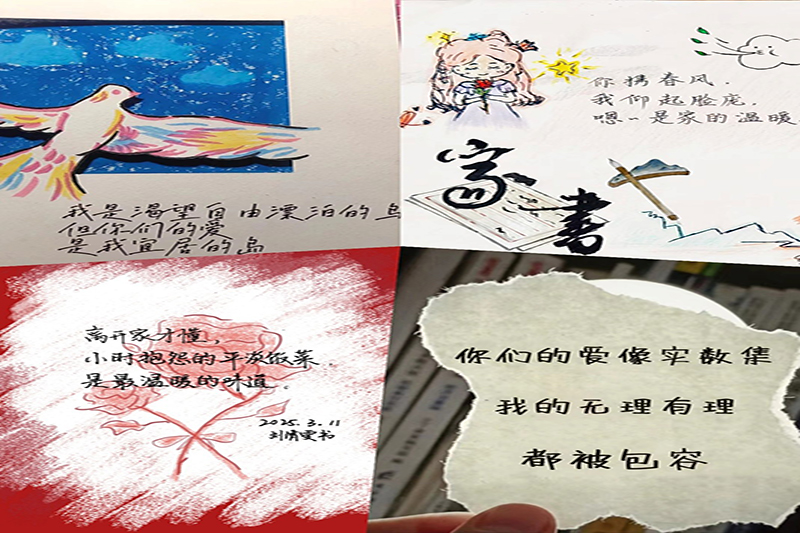 我是渴望自由漂泊的鸟
但你们的爱
是我宜居的岛
你携春风,
我仰起脸庞,
嗯~是家的温暖
家书
离开家才懂,
小时抱怨的平淡饭菜,
是最温暖的味道。
2025.3.11
刘书
你们的爱像实数集
我的无理有理
都被包容